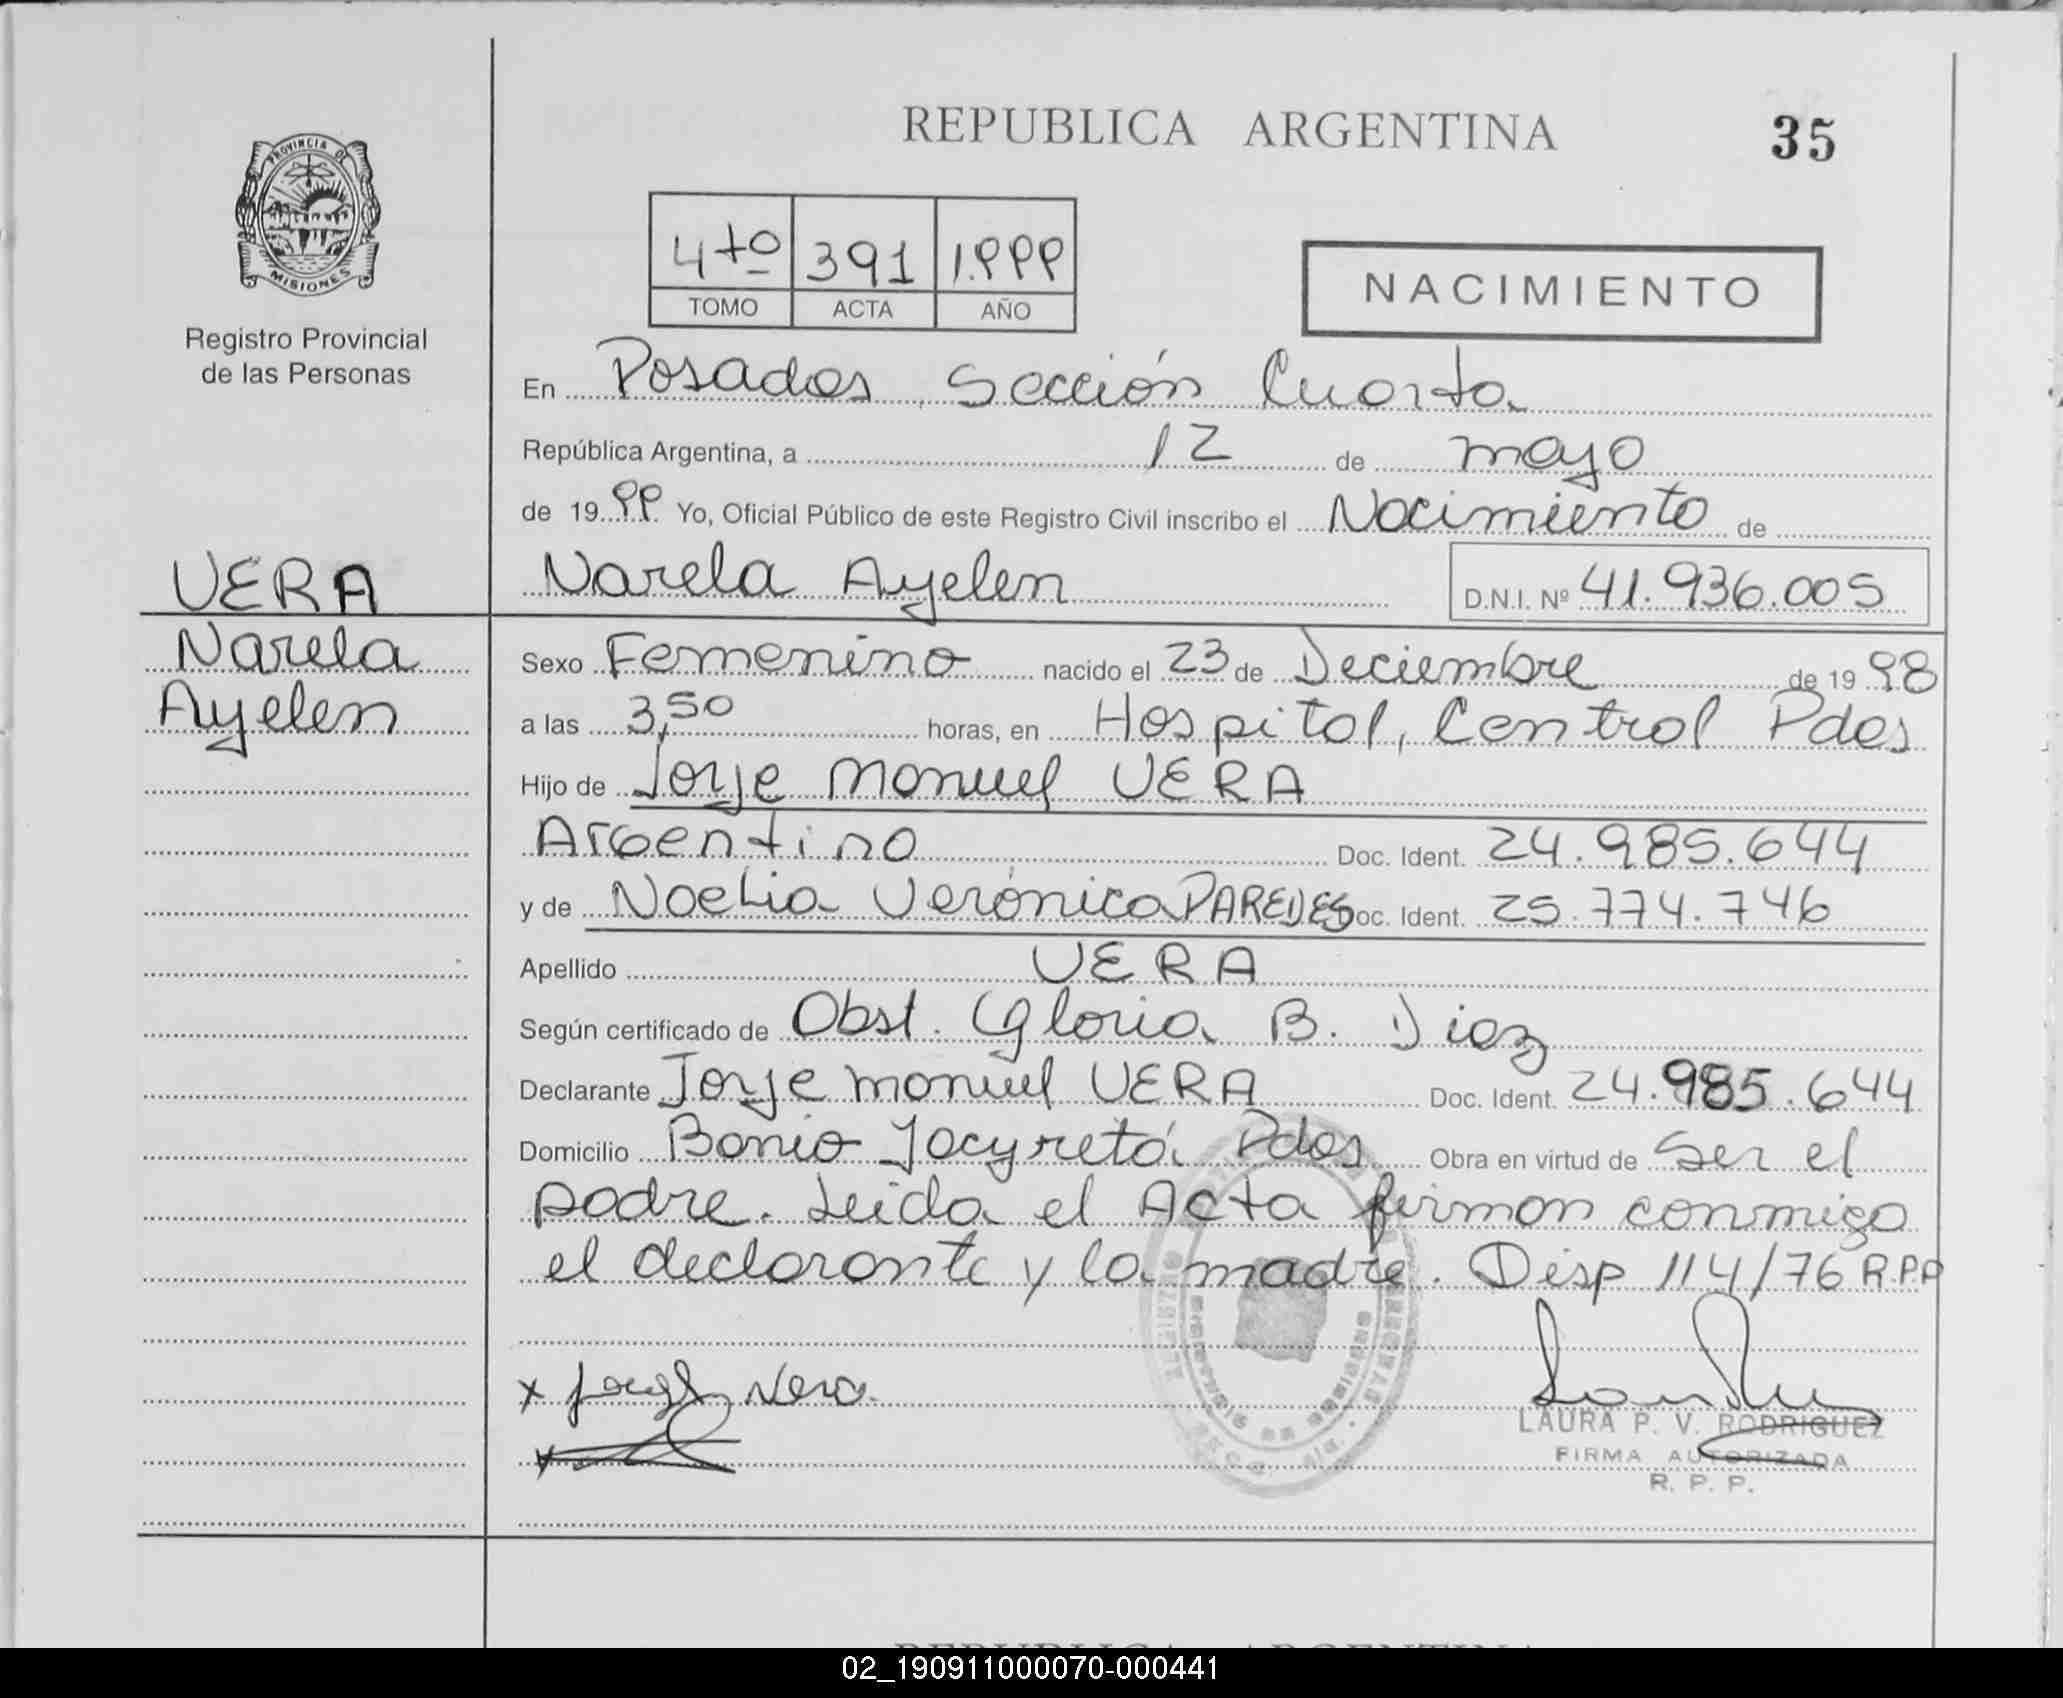 REPUBLICA ARGENTINA
35
PROVINCIA DE
MISIONES
Registro Provincial
de las Personas
4to 391 1.999
TOMO ACTA AÑO
NACIMIENTO
En Posadas, Sección Cuarta
República Argentina, a 12 de mayo
de 1999 Yo, Oficial Público de este Registro Civil inscribo el Nacimiento de
VERA
Narela Ayelen D.N.I. Nº 41.936.005
Narela
Ayelen
Sexo Femenino nacido el 23 de Deciembre de 1998
a las 3,50 horas, en Hospital, Central Pdas
Hijo de Jorje Manuel VERA
Argentino Doc. Ident. 24.985.644
y de Noelia Verónica PAREDES Doc. Ident. 25.774.746
Apellido VERA
Según certificado de Obst. Gloria B. Diaz
Declarante Jorje Manuel VERA Doc. Ident. 24.985.644
Domicilio Barrio Yacyretá Pdas Obra en virtud de Ser el
padre. Leida el Acta firman conmigo
el declarante y la madre. Disp 114/76 R.P.P
x Jorge Vera.
LAURA P. V. RODRIGUEZ
FIRMA AUTORIZADA
R. P. P.
REPUBLICA ARGENTINA
02_190911000070-000441